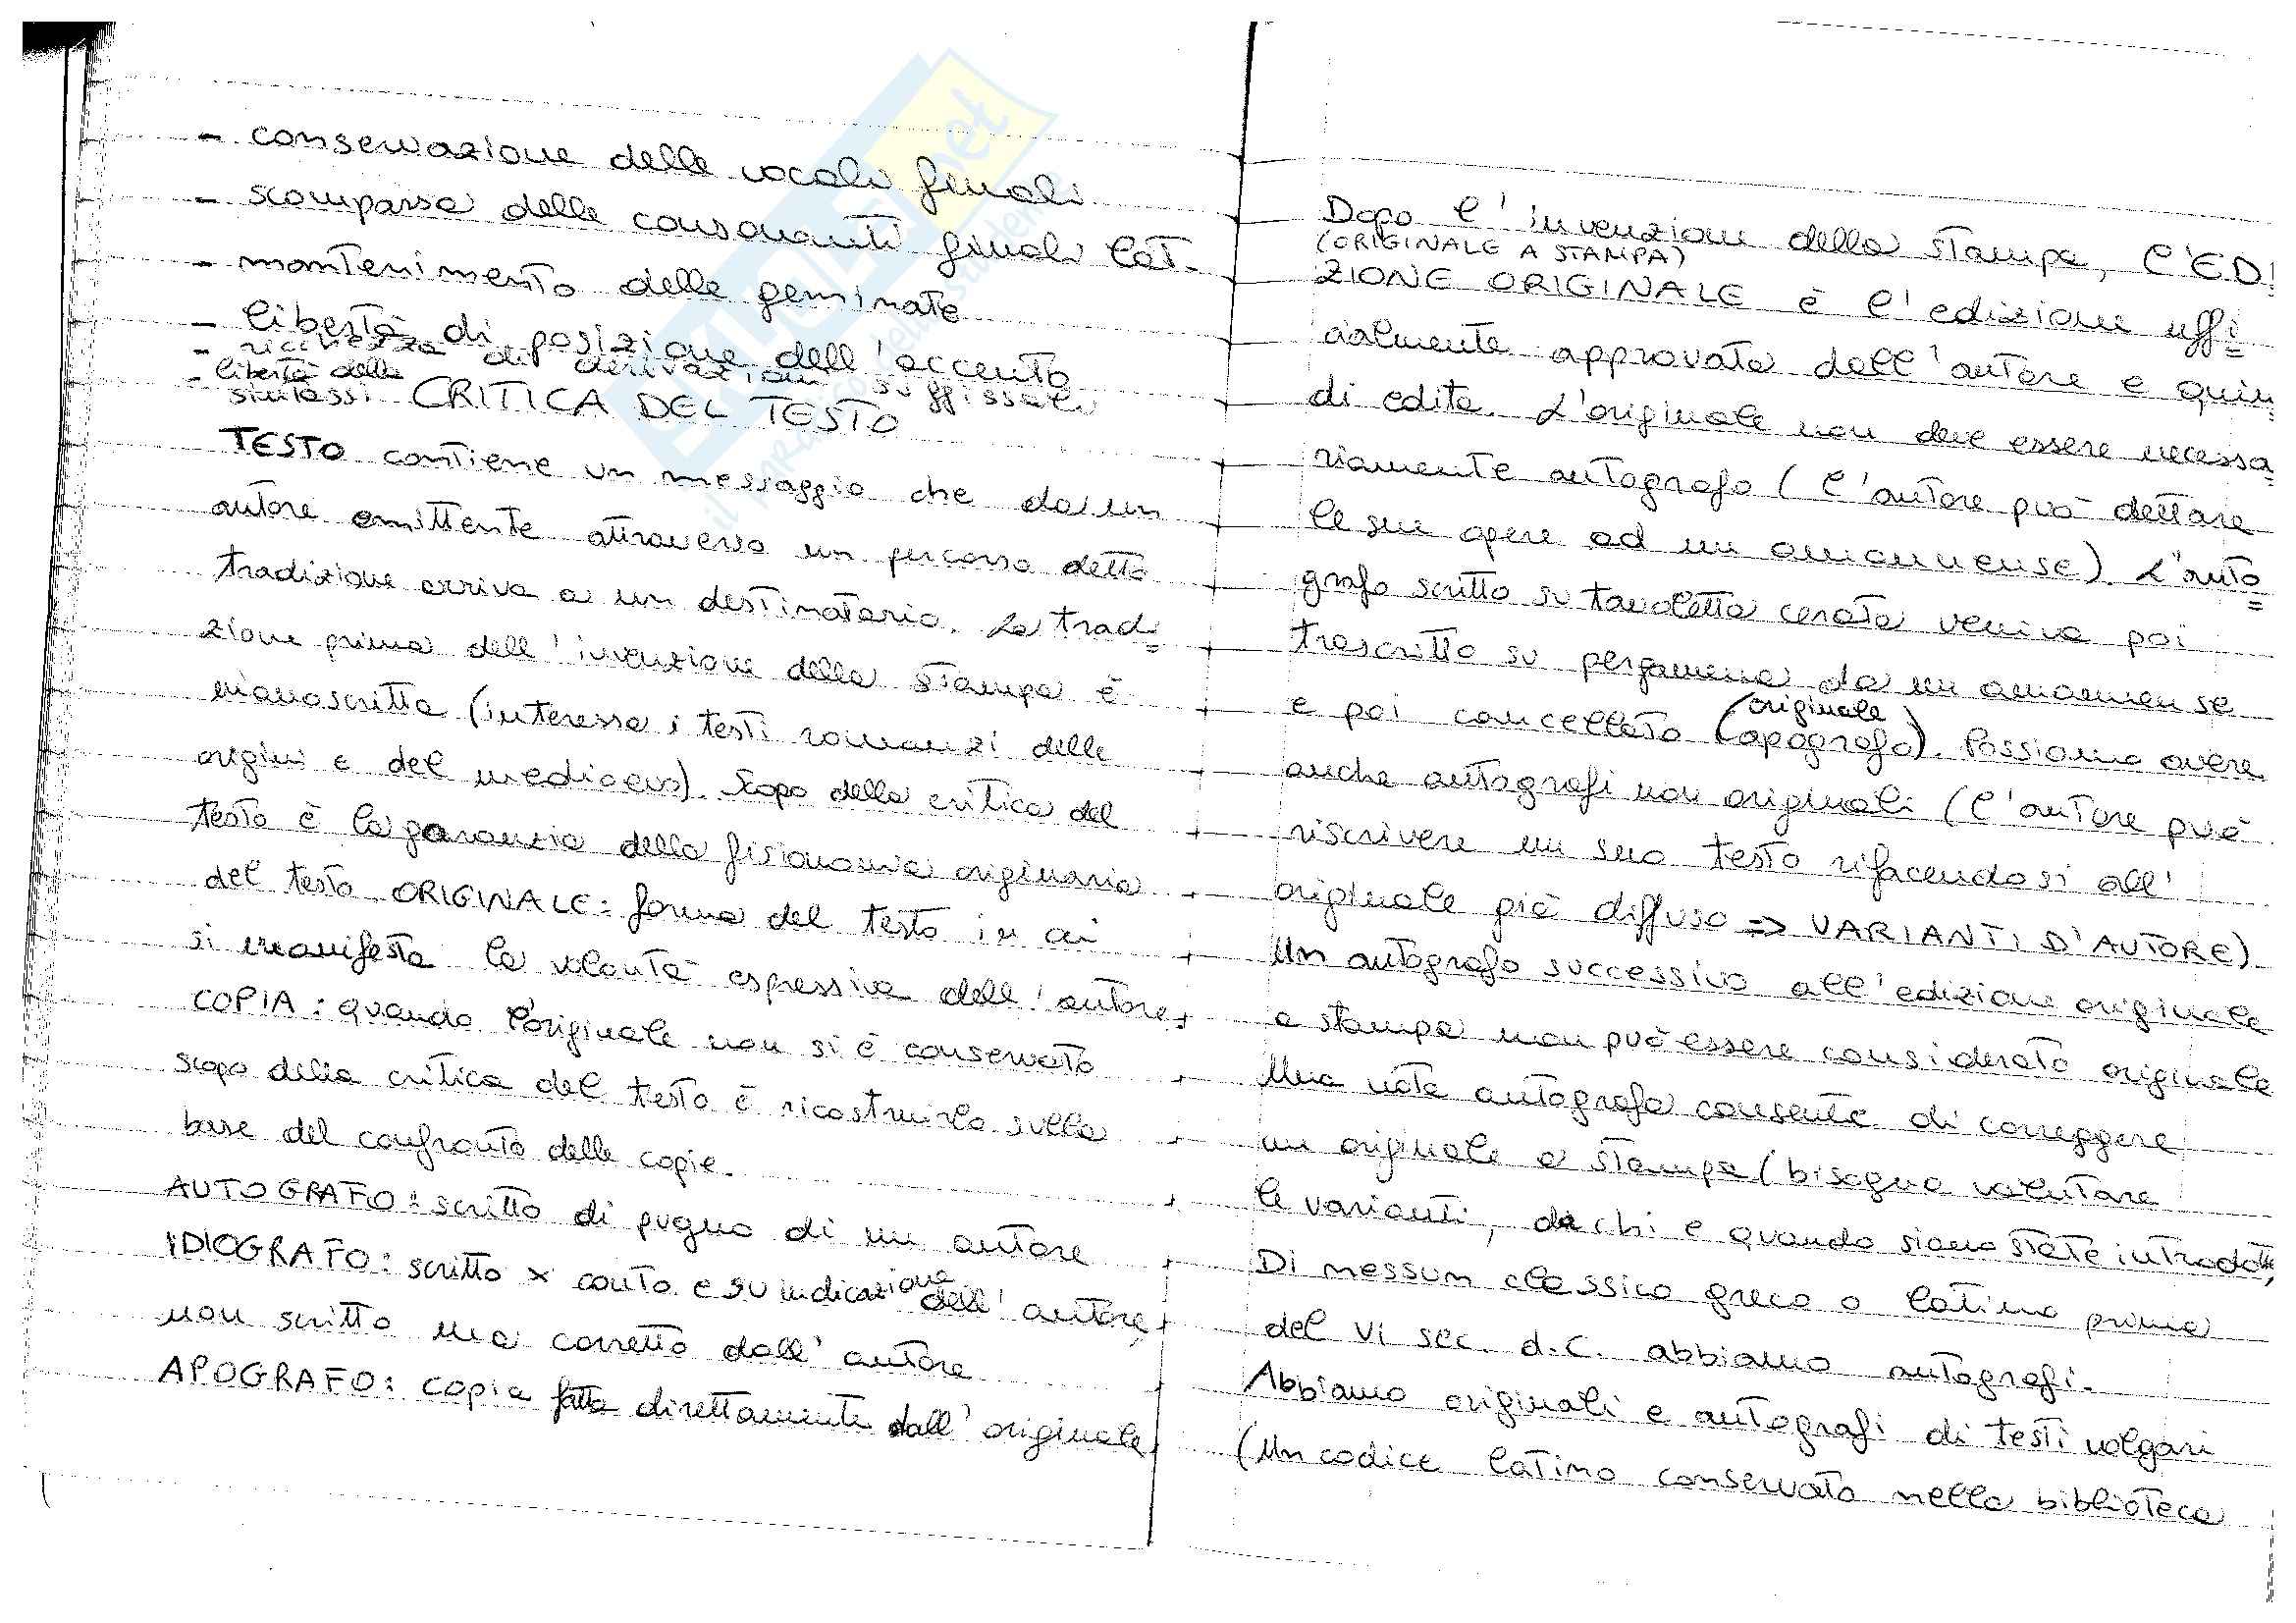 - conservazione delle vocali finali
- scomparsa delle consonanti finali lat.
- mantenimento delle geminate
- libertà di posizione dell'accento
- ricchezza di derivazioni suffissali
- libertà della
sintassi
CRITICA DEL TESTO
TESTO contiene un messaggio che da un
autore emittente attraverso un percorso detto
tradizione arriva a un destinatario. La tradi=
zione prima dell'invenzione della stampa è
manoscritta (interessa i testi romanzi delle
origini e del medioevo). Scopo della critica del
testo è la garanzia della fisionomia originaria
del testo. ORIGINALE: forma del testo in cui
si manifesta la volontà espressiva dell'autore.
COPIA: quando l'originale non si è conservato
scopo della critica del testo è ricostruirlo sulla
base del confronto delle copie.
AUTOGRAFO: scritto di pugno di un autore
IDIOGRAFO: scritto x conto e su indicazione dell'autore,
non scritto ma corretto dall'autore
APOGRAFO: copia fatta direttamente dall'originale.
Dopo l'invenzione della stampa, l'EDI
(ORIGINALE A STAMPA)
ZIONE ORIGINALE è l'edizione uffi=
cialmente approvata dall'autore e quin
di edita. L'originale non deve essere necessa=
riamente autografo (l'autore può dettare
le sue opere ad un amanuense). L'auto=
grafo scritto su tavoletta cerata veniva poi
trascritto su pergamena da un amanuense
e poi cancellato (originale apografo). Possiamo avere
anche autografi non originali (l'autore può
riscrivere un suo testo rifacendosi all'
originale già diffuso => VARIANTI D'AUTORE)
Un autografo successivo all'edizione originale
a stampa non può essere considerato originale
Una nota autografa consente di correggere
un originale a stampa (bisogna valutare
le varianti, da chi e quando siano state introdotte,
Di nessun classico greco o latino prima
del VI sec. d.C. abbiamo autografi.
Abbiamo originali e autografi di testi volgari
(Un codice latino conservato nella biblioteca